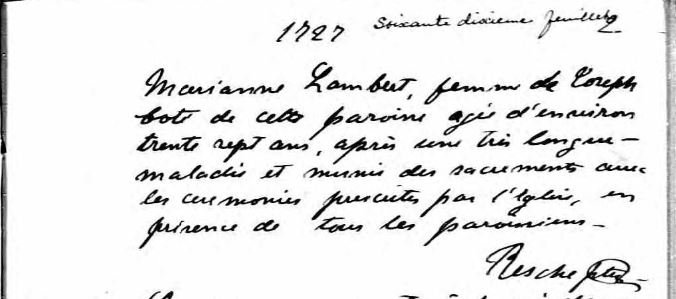 1727 Soixante dixieme feuillet
Marianne Lambert, femme de Joseph
boté de cette paroisse agée d'environ
trente sept ans, après une très longue
maladie et munie des sacrements avec
les ceremonies prescrites par l'Eglise, en
présence de tous les paroissiens
Resche